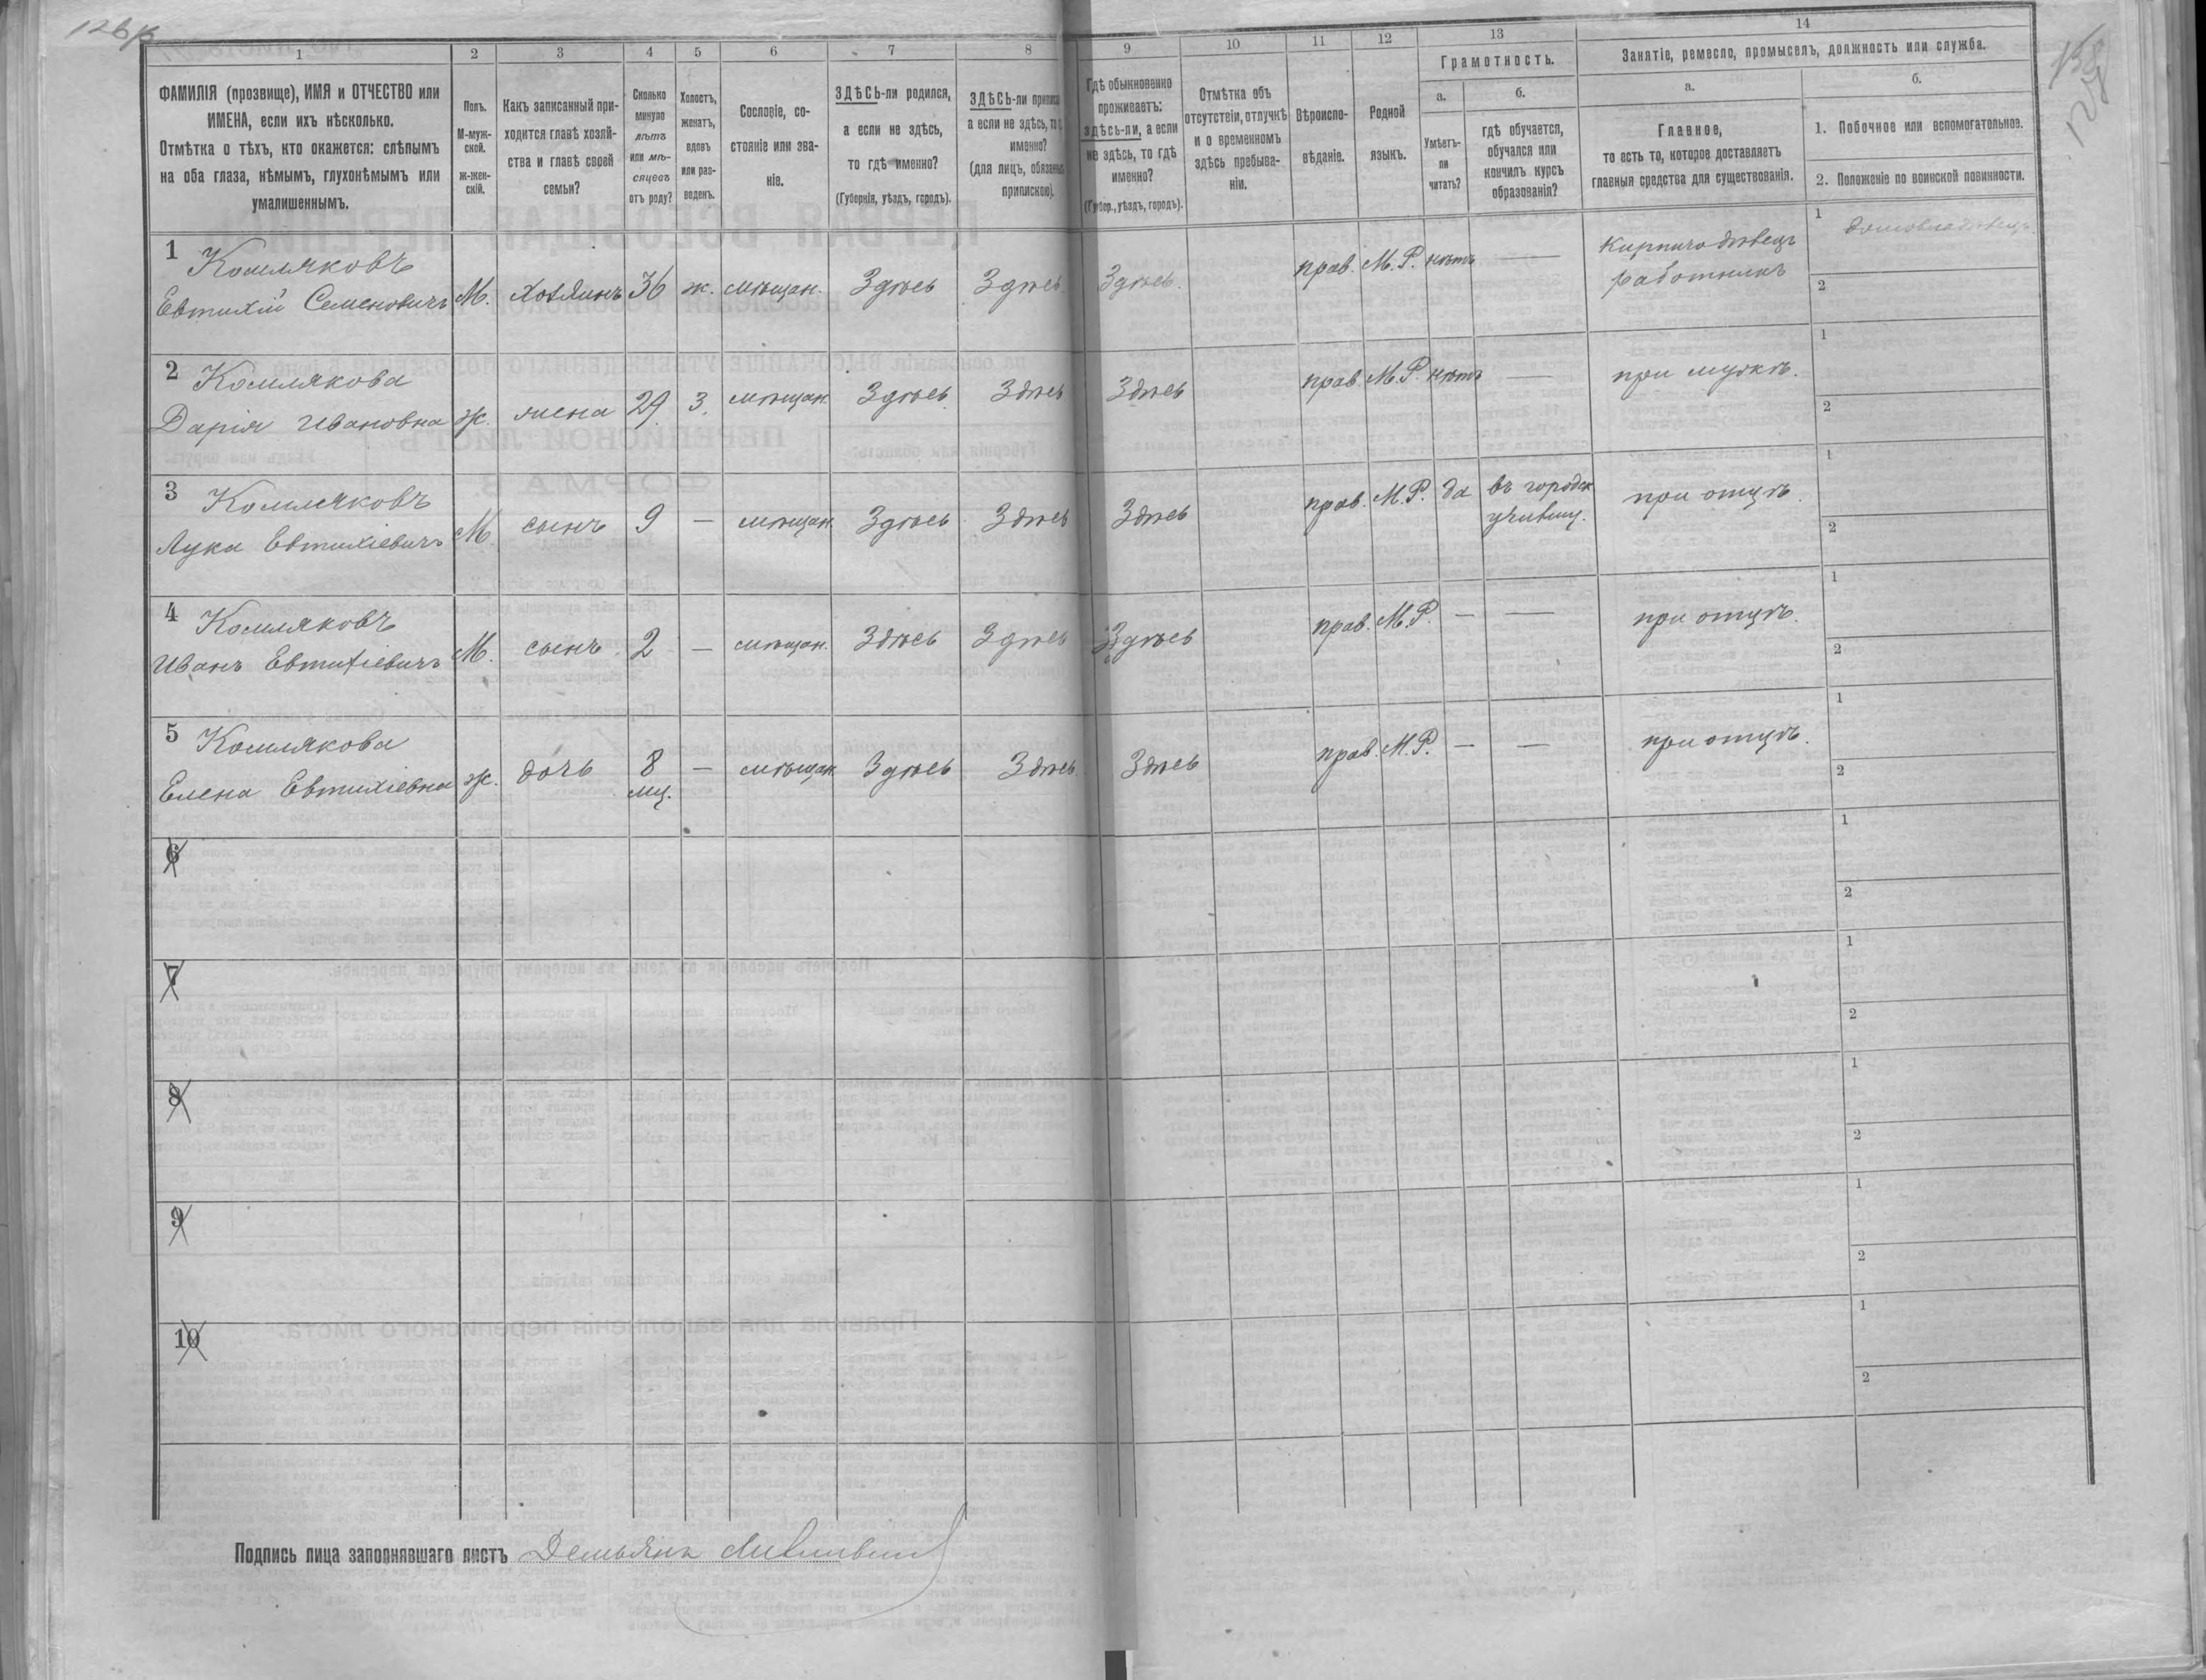 126
1
2
3
4
5
6
7
8
9
10
11
12
13
14
ФАМИЛІЯ (прозвище), ИМЯ и ОТЧЕСТВО или
ИМЕНА, если ихъ нѣсколько.
Отмѣтка о тѣхъ, кто окажется: слѣпымъ
на оба глаза, нѣмымъ, глухонѣмымъ или
умалишеннымъ.
Полъ.
М-муж-
ской.
Ж-жен-
скій.
Какъ записанный при-
ходится главѣ хозяй-
ства и главѣ своей
семьи?
Сколько
минуло
лѣтъ
или мѣ-
сяцевъ
отъ роду?
Холостъ,
женатъ,
вдовъ
или раз-
веденъ.
Сословіе, со-
стояніе или зва-
ніе.
ЗДѢСЬ-ли родился,
а если не здѣсь,
то гдѣ именно?
(Губернія, уѣздъ, городъ).
ЗДѢСЬ-ли
а если не здѣсь,
именно?
(для лицъ,
припискою).
Гдѣ обыкновенно
проживаетъ:
здѣсь-ли, а если
не здѣсь, то гдѣ
именно?
(Губер., уѣздъ, городъ).
Отмѣтка объ
отсутствіи, отлучкѣ
и о временномъ
здѣсь пребыва-
ніи.
Вѣроиспо-
вѣданіе.
Родной
языкъ.
Грамотность.
а.
Умѣетъ-
ли
читать?
б.
гдѣ обучается,
обучался или
кончилъ курсъ
образованія?
Занятіе, ремесло, промыселъ, должность или служба.
а.
Главное,
то есть то, которое доставляетъ
главныя средства для существованія.
б.
1. Побочное или вспомогательное.
2. Положеніе по воинской повинности.
1
Комляковъ
Евтихій Семеновичъ М. хозяинъ 36 ж. мѣщан. Здѣсь Здѣсь Здѣсь прав. М.Р. нѣтъ — кирпичодѣвецъ
работникъ
1 домовладѣлецъ
2
2
Комлякова
Дарія Ивановна ж. жена 29 з. мѣщан. Здѣсь Здѣсь Здѣсь прав. М.Р. нѣтъ — при мужѣ.
1
2
3
Комляковъ
Лука Евтихіевичъ М. сынъ 9 — мѣщан. Здѣсь Здѣсь Здѣсь прав. М.Р. да въ городск
училищ. при отцѣ.
1
2
4
Комляковъ
Иванъ Евтихіевичъ М. сынъ 2 — мѣщан. Здѣсь Здѣсь Здѣсь прав. М.Р. — — при отцѣ.
1
2
5
Комлякова
Елена Евтихіевна ж. дочь 8
мц. — мѣщан. Здѣсь Здѣсь Здѣсь прав. М.Р. — — при отцѣ.
1
2
6
1
2
7
1
2
8
1
2
9
1
2
10
1
2
Подпись лица заполнявшаго листъ Демьянъ